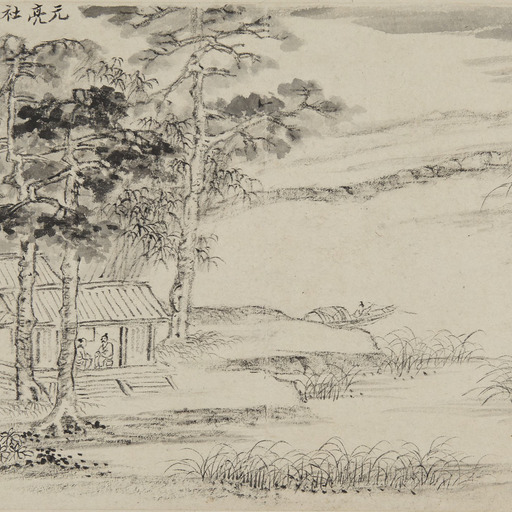 元亮社